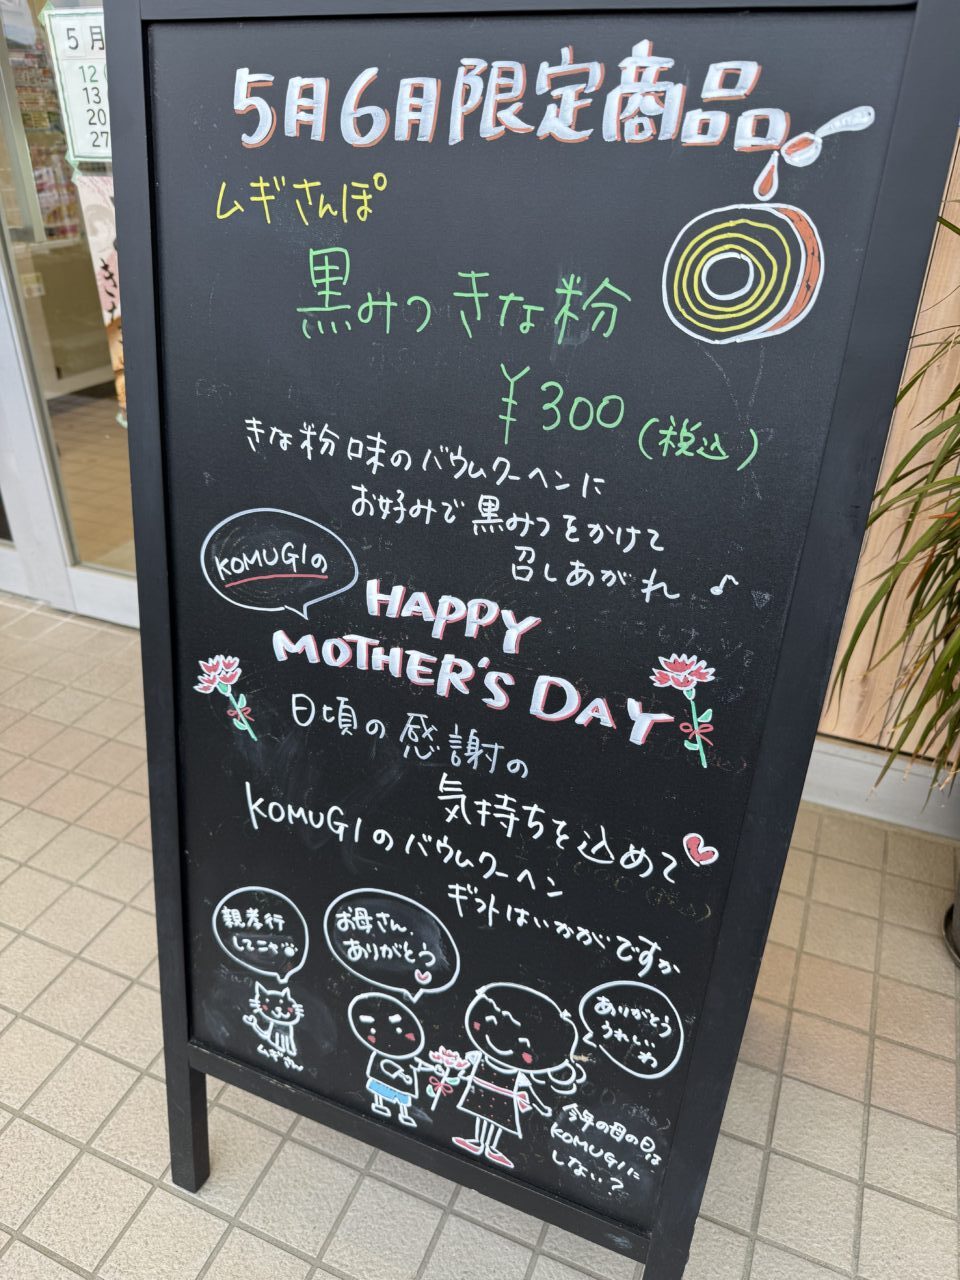 5月
12
13
20
27
5月6月限定商品
ムギさんぽ
黒みつきな粉
¥300(税込)
きな粉味のバウムクーヘンに
お好みで黒みつをかけて
召しあがれ♪
KOMUGIの
HAPPY
MOTHER'S DAY
日頃の感謝の
気持ちを込めて
KOMUGIのバウムクーヘン
ギフトはいかがですか
親孝行
してニャ
お母さん、
ありがとう
ありがとう
うれしいわ
ムギさん
今年の母の日は
KOMUGIに
しない?